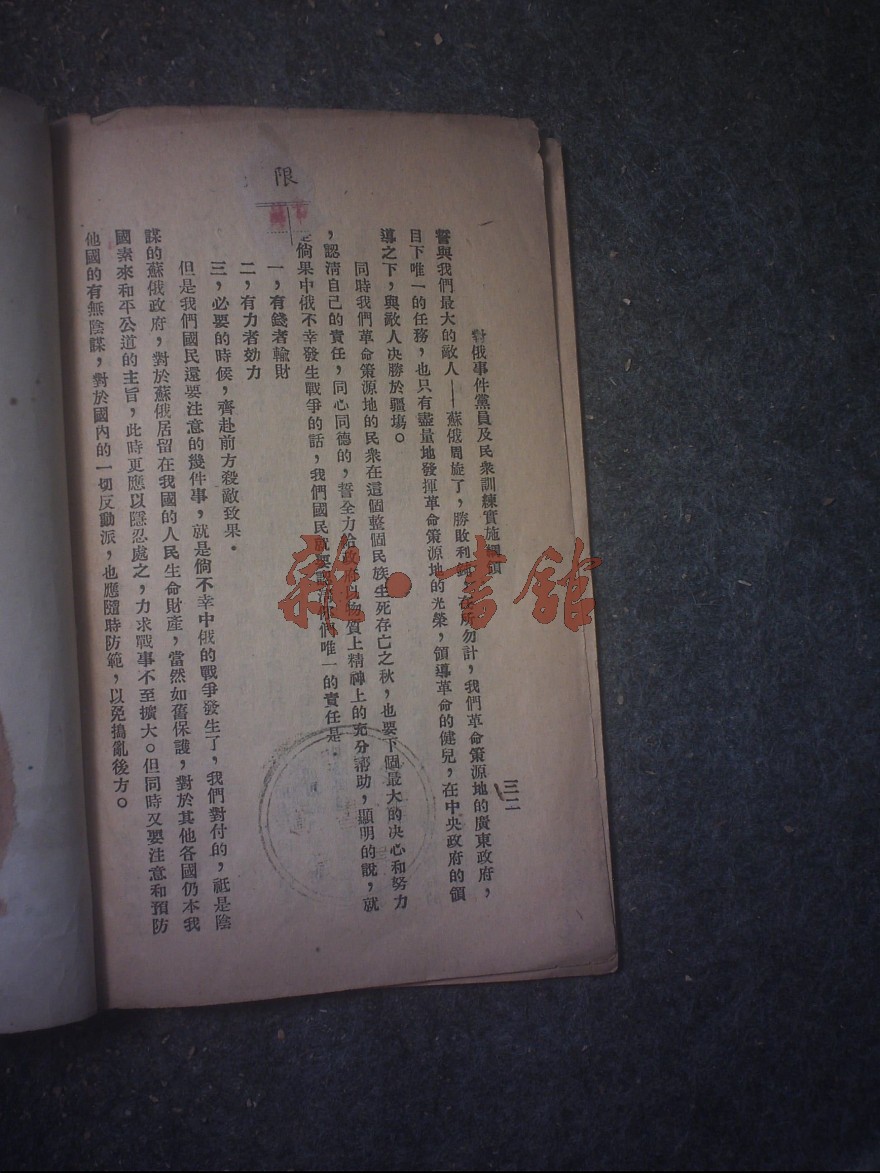 對俄事件黨員及民衆訓練實施綱領
三二
誓與我們最大的敵人——蘇俄周旋了，勝敗利鈍，在所勿計，我們革命策源地的廣東政府，
目下唯一的任務，也只有盡量地發揮革命策源地的光榮，領導革命的健兒，在中央政府的領
導之下，與敵人决勝於疆塲。
同時我們革命策源地的民衆在這個整個民族生死存亡之秋，也要下個最大的决心和努力
，認清自己的責任，同心同德的，誓全力給政府以物質上精神上的充分幫助，顯明的說，就
是倘果中俄不幸發生戰爭的話，我們國民就要認清你們唯一的責任是：
一，有錢者輸財
二，有力者効力
三，必要的時候，齊赴前方殺敵致果。
但是我們國民還要注意的幾件事，就是倘不幸中俄的戰爭發生了，我們對付的，祗是陰
謀的蘇俄政府，對於蘇俄居留在我國的人民生命財產，當然如舊保護，對於其他各國仍本我
國素來和平公道的主旨，此時更應以隱忍處之，力求戰事不至擴大。但同時又要注意和預防
他國的有無陰謀，對於國內的一切反動派，也應隨時防範，以免搗亂後方。
限
雜·書館